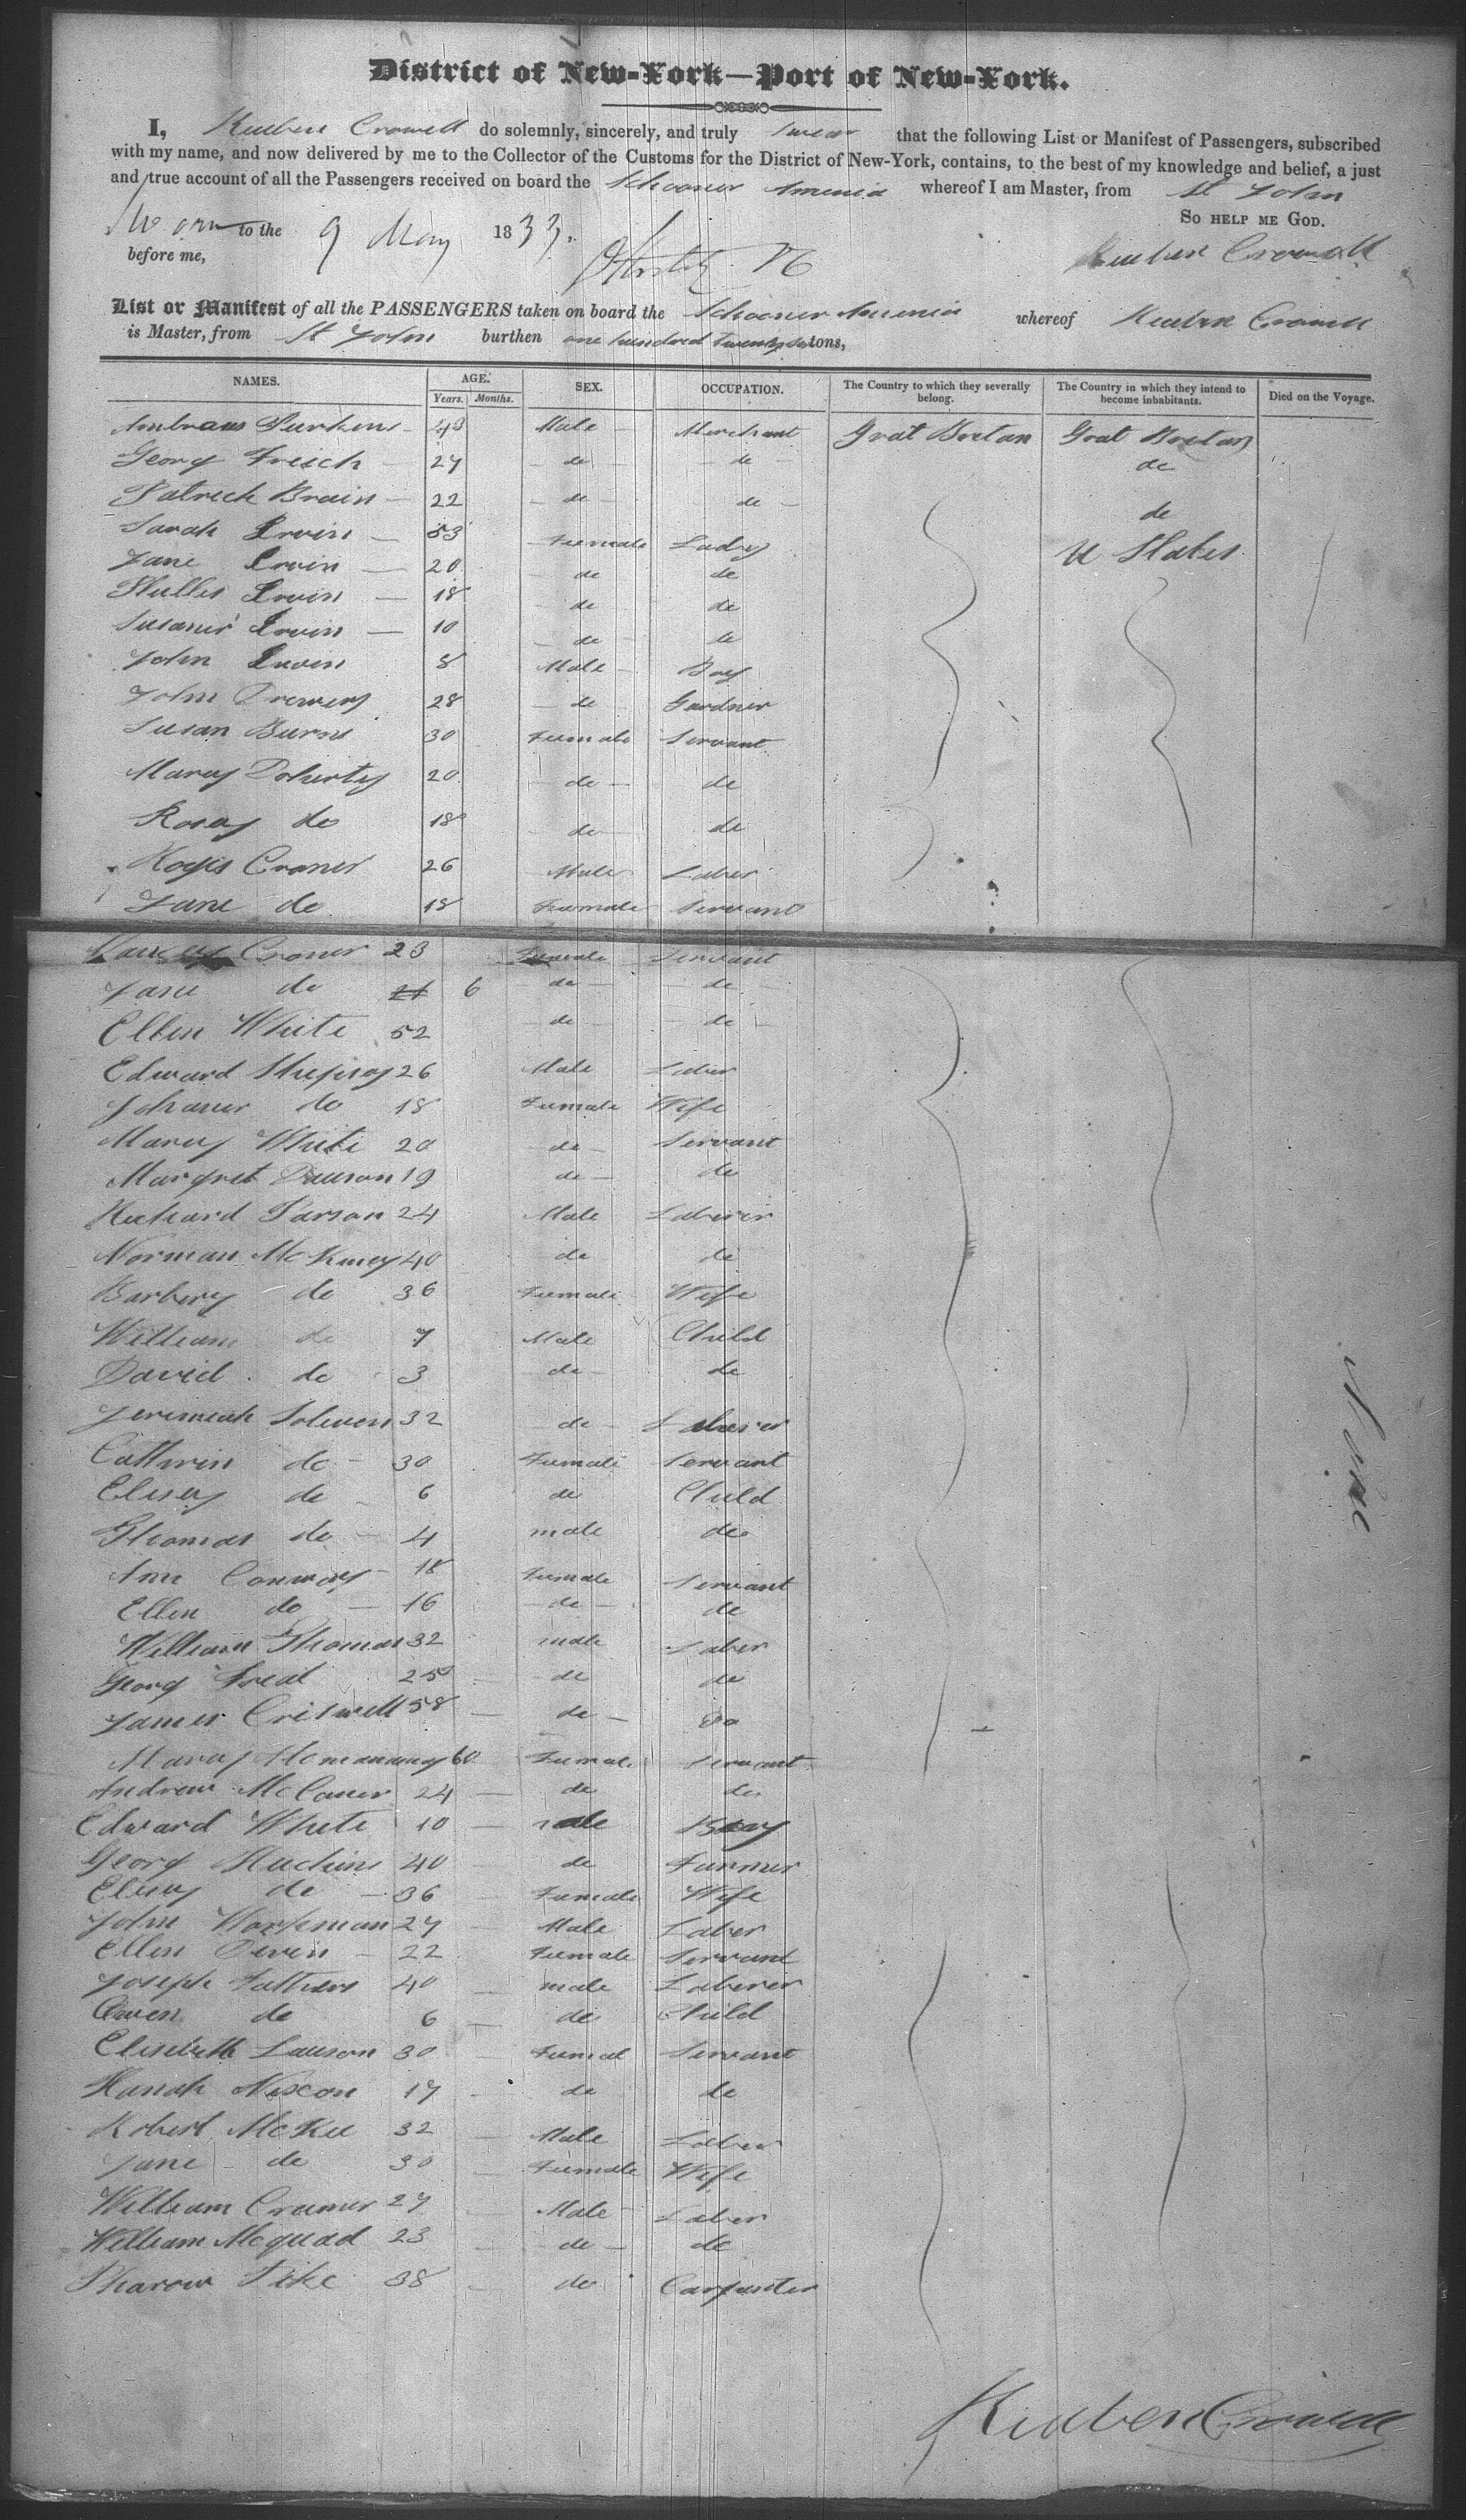 District of New-York—Port of New-York.
I, Reuben Crowell do solemnly, sincerely, and truly swear that the following List or Manifest of Passengers, subscribed
with my name, and now delivered by me to the Collector of the Customs for the District of New-York, contains, to the best of my knowledge and belief, a just
and true account of all the Passengers received on board the Schooner Amenia whereof I am Master, from St John
So help me God.
Sworn to the 9 May 1833.
before me,
Reuben Crowell
List or Manifest of all the PASSENGERS taken on board the Schooner Amenia whereof Reuben Crowell
is Master, from St John burthen one hundred twenty tons,
NAMES. AGE. Years. Months. SEX. OCCUPATION. The Country to which they severally belong. The Country in which they intend to become inhabitants. Died on the Voyage.
Male Merchant Grat Bretan Grat Bretan
Georg French 27 de de de
Patrick Brain 22 de de de
Sarah Ervin 53 Female Lady U States
Jane Ervin 20 de de
Ervin 18 de de
Ervin 10 de de
John Ervin 8 Male Boy
John 28 de Gardner
Susan Burns 30 Female Servant
Marey Doherty 20 de de
Rosey do 18 de de
Croner 26 Male Laber
Jane do 18 Female Servant
Croner 23 Female Servant
Jane do 6 de de
Ellen White 52 de de
Edward 26 Male Laber
do 18 Female Wife
Marey White 20 de Servant
Margret 19 de de
Richard Parson 24 Male Laberer
Norman McKiney 40 de de
Barbery do 36 Female Wife
William do 7 Male Child
David do 3 de de
Jerimeah Soleven 32 de Laberer
Cathrin do 30 Female Servant
Elisey do 6 de Child
Thomas do 4 male de
Ann Conway 18 Female Servant
Ellen do 16 de de
William Thomas 32 male Laber
Georg 25 de de
James Criswell 58 de Do
Marey 60 Female Servant
Andrew 24 de de
Edward White 10 male Boy
Georg Huchins 40 de Farmer
Elisey do 36 Female Wife
John Workman 27 Male Laber
Ellen 22 Female Servant
Joseph 40 male Laberer
Owen do 6 de Child
Elisebeth Lawson 30 Femal Servant
Hanah Nixon 17 de de
Robert McKee 32 Male Laber
Jane do 30 Female Wife
William Cramer 27 Male Laber
William Mcquad 23 de de
Pike 38 do Carpenter
None
Reuben Crowell